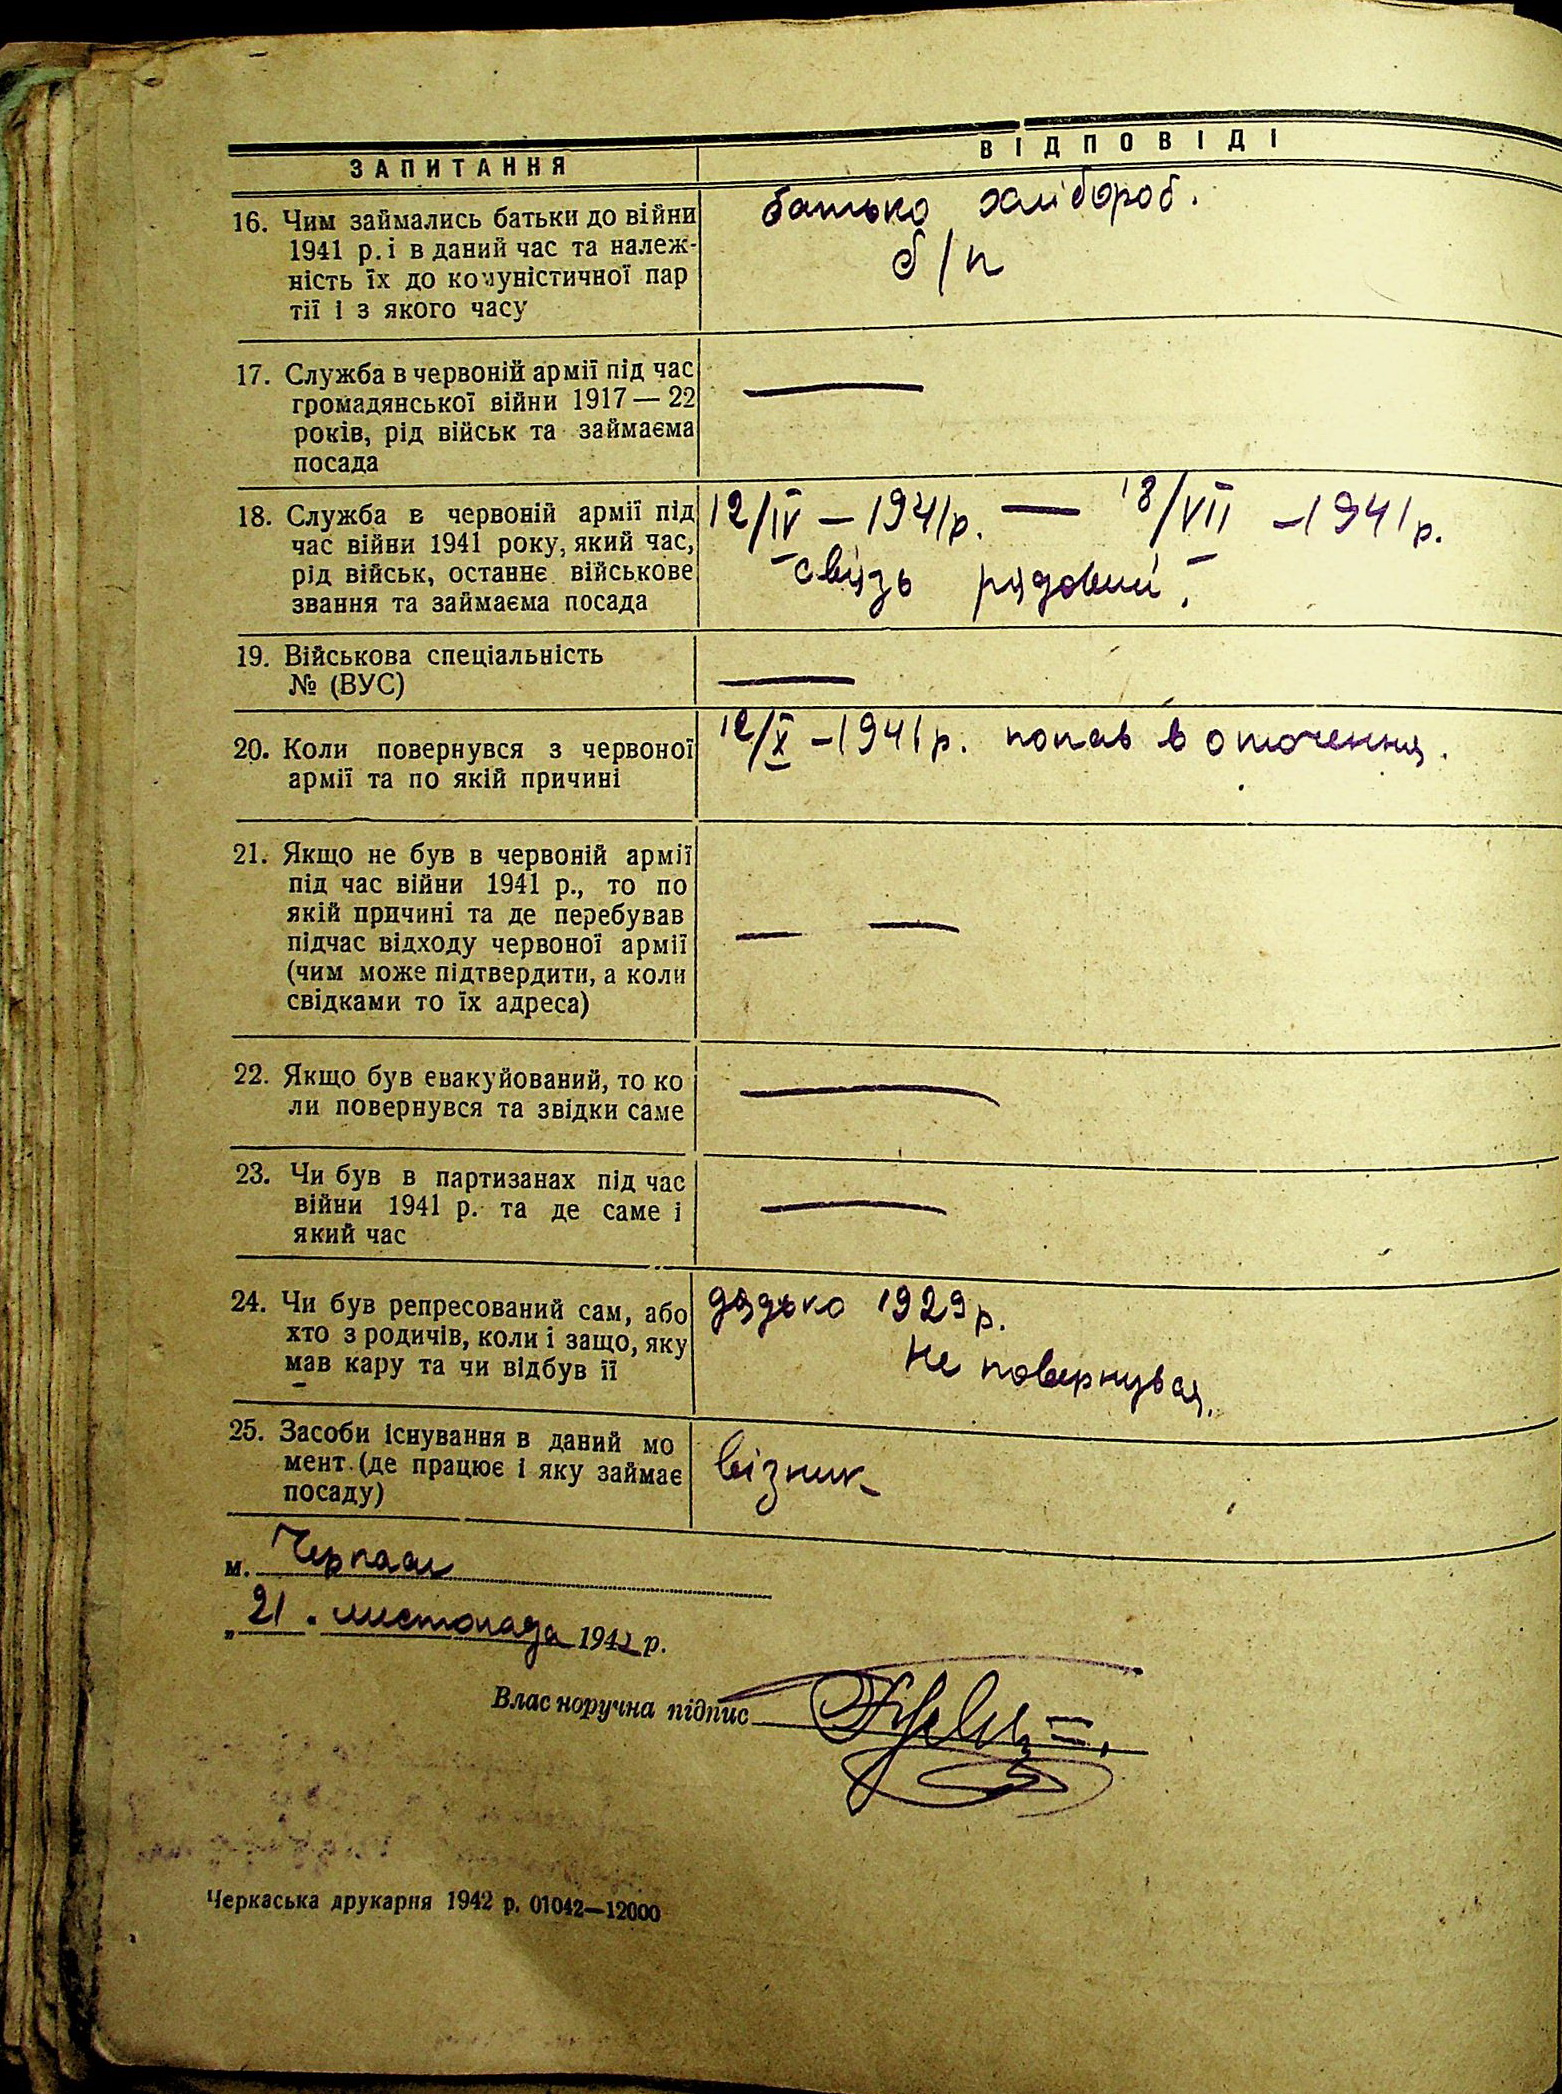 ЗАПИТАННЯ
ВІДПОВІДІ
16. Чим займались батьки до війни
1941 р. і в даний час та належ-
ність їх до комуністичної пар
тії і з якого часу
батько хлібороб.
б/п
17. Служба в червоній армії під час
громадянської війни 1917—22
років, рід військ та займаєма
посада
—
18. Служба в червоній армії під
час війни 1941 року, який час,
рід військ, останнє військове
звання та займаєма посада
12/IV – 1941 р. — 18/VII – 1941 р.
– связь рядовий. –
19. Військова спеціальність
№ (ВУС)
—
20. Коли повернувся з червоної
армії та по якій причині
12/X – 1941 р. попав в оточення.
21. Якщо не був в червоній армії
під час війни 1941 р., то по
якій причині та де перебував
підчас відходу червоної армії
(чим може підтвердити, а коли
свідками то їх адреса)
— —
22. Якщо був евакуйований, то ко
ли повернувся та звідки саме
—
23. Чи був в партизанах під час
війни 1941 р. та де саме і
який час
—
24. Чи був репресований сам, або
хто з родичів, коли і защо, яку
мав кару та чи відбув її
дядько 1929 р.
Не повернувся.
25. Засоби існування в даний мо
мент (де працює і яку займає
посаду)
візник
м. Черкаси
„21" листопада 1942 р.
Власноручна підпис
Черкаська друкарня 1942 р. 01042—12000